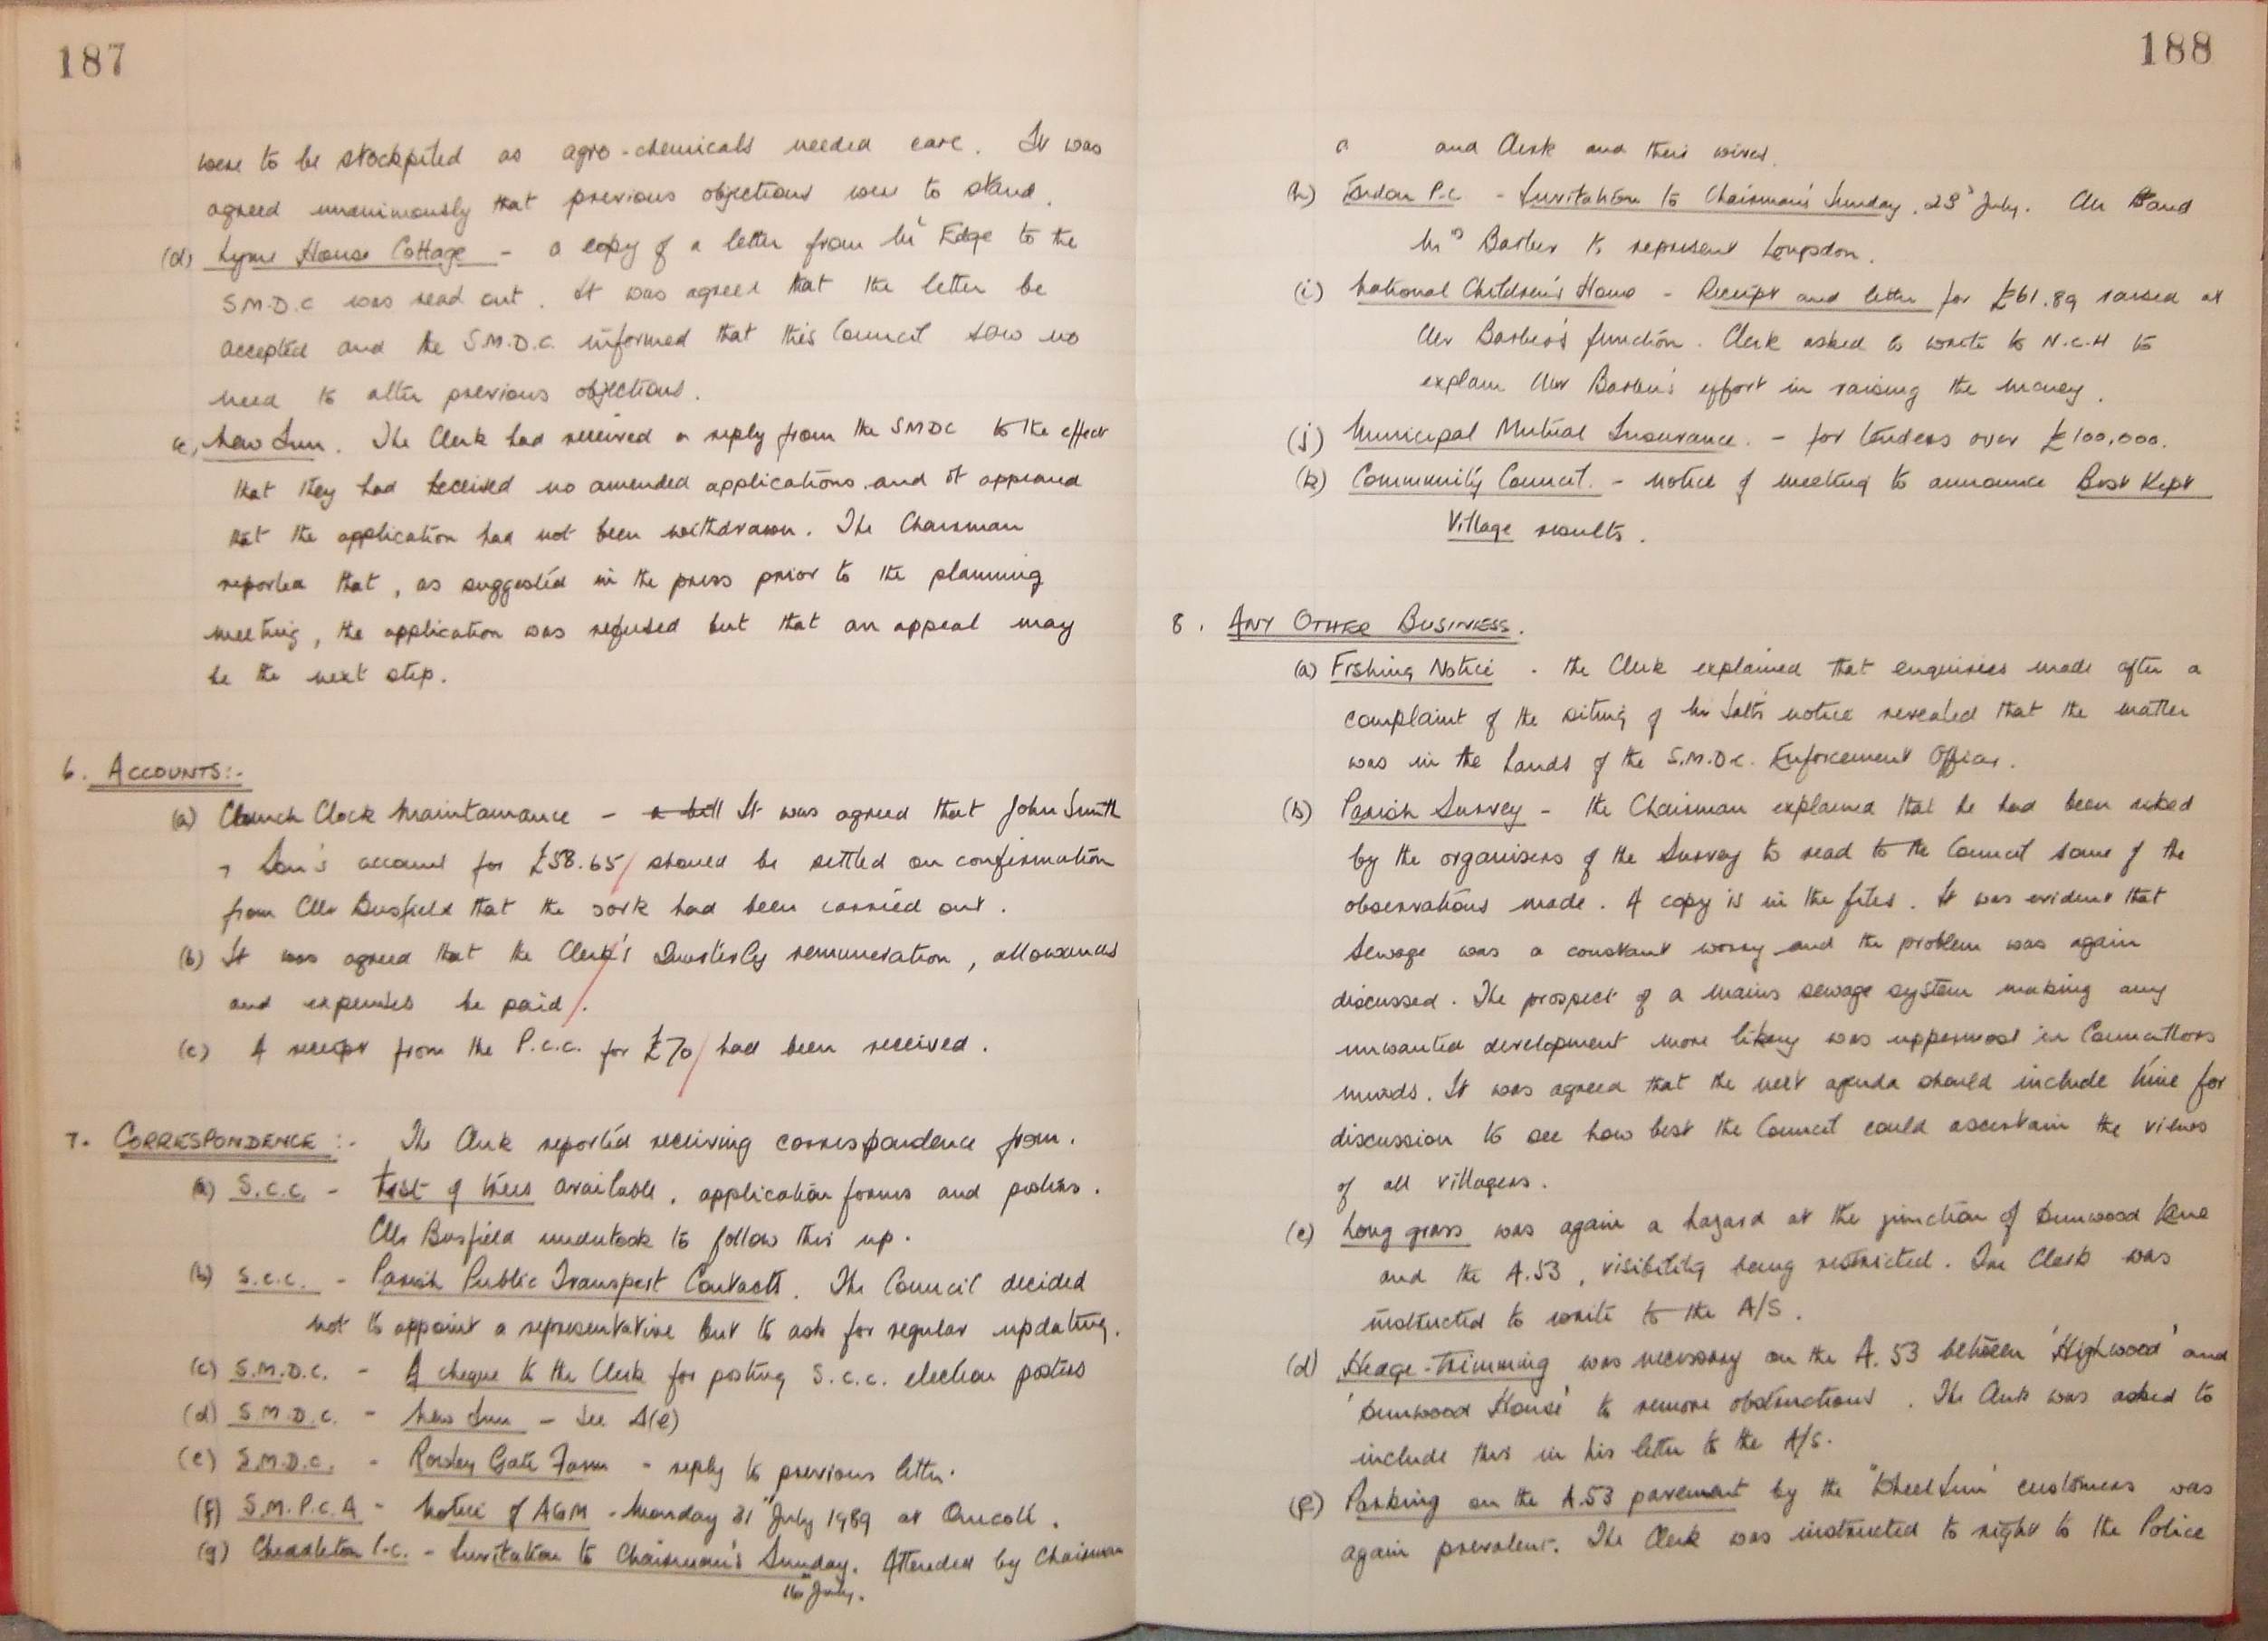 187
were to be stockpiled as agro-chemicals needed care. It was
agreed unanimously that previous objections were to stand.
(d) Lyme House Cottage - a copy of a letter from Mr Edge to the
S.M.D.C was read out. It was agreed that the letter be
accepted and the S.M.D.C. informed that this Council saw no
need to alter previous objections.
e, New Inn. The Clerk had received a reply from the SMDC to the effect
that they had received no amended applications and it appeared
that the application had not been withdrawn. The Chairman
reported that, as suggested in the press prior to the planning
meeting, the application was refused but that an appeal may
be the next step.
6. ACCOUNTS:-
(a) Church Clock Maintainance - a bill It was agreed that John Smith
& Son's account for £58.65 should be settled on confirmation
from Cllr Busfield that the work had been carried out.
(b) It was agreed that the Clerk's Quarterly remuneration, allowances
and expenses be paid.
(c) A receipt from the P.C.C. for £70 had been received.
7. CORRESPONDENCE:- The Clerk reported receiving correspondence from.
(a) S.C.C. - List of trees available, application forms and posters.
Cllr Busfield undertook to follow this up.
(b) S.C.C. - Parish Public Transport Contacts. The Council decided
not to appoint a representative but to ask for regular updating.
(c) S.M.D.C. - A cheque to the Clerk for posting S.C.C. election posters
(d) S.M.D.C. - New Inn - See 5(e)
(e) S.M.D.C. - Rowley Gate Farm - reply to previous letter.
(f) S.M.P.C.A - Notice of AGM - Monday 31st July 1989 at Onecote.
(g) Cheddleton P.C. - Invitation to Chairman's Sunday. Attended by Chairman
16th July.
188
and Clerk and their wives.
(h) Endon P.C - Invitation to Chairman's Sunday, 23rd July. Cllr and
Mrs Barber to represent Longsdon.
(i) National Children's Home - Receipt and letter for £61.89 raised at
Cllr Barber's function. Clerk asked to write to N.C.H to
explain Cllr Barber's effort in raising the money.
(j) Municipal Mutual Insurance. - for tenders over £100,000.
(k) Community Council. - notice of meeting to announce Best Kept
Village results.
8. ANY OTHER BUSINESS.
(a) Fishing Notice. the Clerk explained that enquiries made after a
complaint of the siting of Mr Salt's notice revealed that the matter
was in the hands of the S.M.D.C. Enforcement Officer.
(b) Parish Survey - the Chairman explained that he had been asked
by the organisers of the Survey to read to the Council some of the
observations made. A copy is in the files. It was evident that
sewage was a constant worry and the problem was again
discussed. The prospect of a mains sewage system making any
unwanted development more likely was uppermost in Councillors
minds. It was agreed that the next agenda should include time for
discussion to see how best the Council could ascertain the views
of all villagers.
(c) Long grass was again a hazard at the junction of Dunwood Lane
and the A.53, visibility being restricted. The Clerk was
instructed to write to the A/S.
(d) Hedge-trimming was necessary on the A.53 between 'Highwood' and
'Dunwood House' to remove obstructions. The Clerk was asked to
include this in his letter to the A/S.
(e) Parking on the A.53 pavement by the "Wheel Inn' customers was
again prevalent. The Clerk was instructed to right to the Police